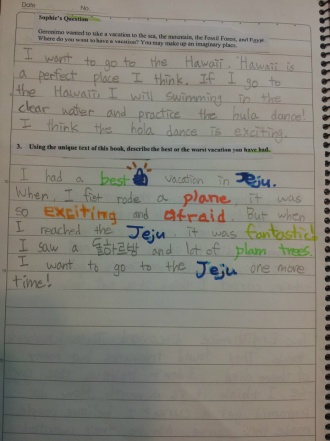 Date No.
Sophie's Question
Geronimo wanted to take a vacation to the sea, the mountain, the Fossil Forest, and Egypt.
Where do you want to have a vacation? You may make up an imaginary place.
I want to go to the Hawaii. Hawaii is
a perfect place I think. If I go to
the Hawaii, I will swimming in the
clear water and practice the hula dance!
I think the hola dance is exciting.
3. Using the unique text of this book, describe the best or the worst vacation you have had.
I had a best vacation in Jeju.
When I fist rode a plane, it was
so exciting and afraid. But when
I reached the Jeju, it was fantastic!
I saw a 돌하르방 and lot of plam trees.
I want to go to the Jeju one more
time!